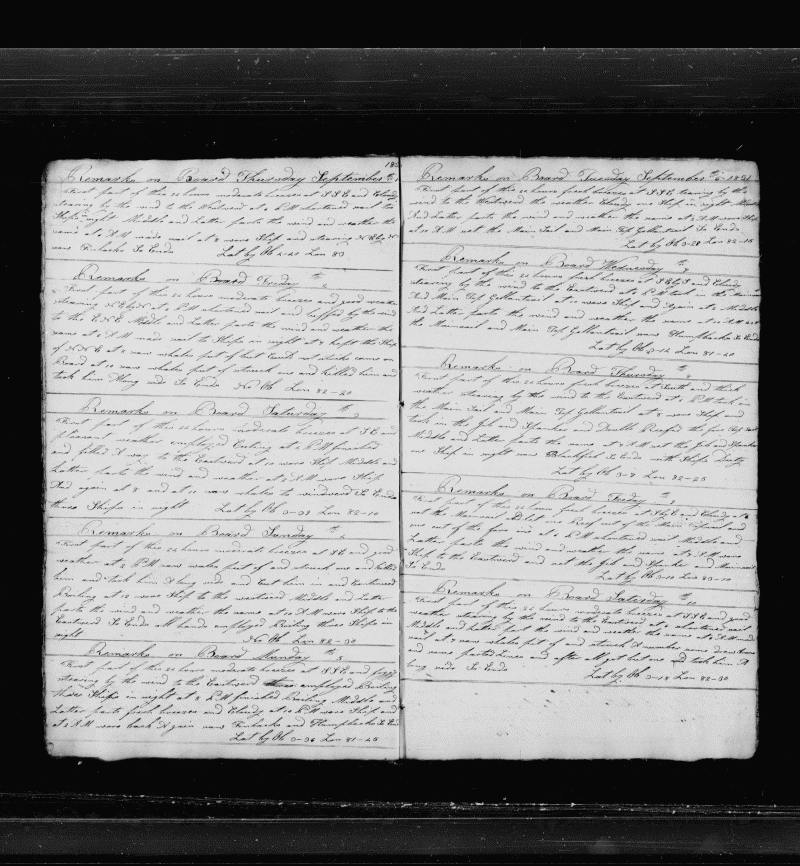 182
Remarks on Board Thursday September th 1
First part of this 24 hours moderate breezes at S S E and Cloudy
stearing by the wind to the Westward at 6 P M shortned sail to
Ships night Middle and Latter parts the wind and weather the
same at 6 A M made sail at 8 wore Ship and stearing N E by N
saw Finbacks So Ends Lat by Ob 2-20 Lon 83
Remarks on Board Friday th 2
First part of this 24 hours moderate breezes and good weather
stearing N E by N at P M shortned sail and luffed by the wind
to the E N E Middle and Latter parts the wind and weather the
same at 6 A M made sail to Ships in sight at 8 kept the Ship
of N N E at 8 saw whales put of but Could not strike came on
Board at 10 saw whales put of struck one and killed him and
took him Along side So Ends No Ob Lon 82-20
Remarks on Board Saturday th 3
First part of this 24 hours moderate breezes at S E and
pleasant weather employed Cuting at 2 P M finished
and filled A way to the Eastward at 10 wore Ship Middle and
Latter parts the wind and weather at 2 A M wore Ship
And again at 8 and at 10 saw whales to windward So Ends
three Ships in sight Lat by Ob 0-33 Lon 82-10
Remarks on Board Sunday th 4
First part of this 24 hours moderate breezes at S E and good
weather at 2 P M saw whales put of and struck one and killed
him and took him A long side and Cut him in and Continued
Boiling at 10 wore Ship to the westward Middle and Latter
parts the wind and weather the same at 10 A M wore Ship to the
Eastward So Ends all hands employed Boiling three Ships in
sight No Ob Lon 82-30
Remarks on Board Munday th 5
First part of this 24 hours moderate breezes at S S E and foggy
stearing by the wind to the Eastward employed Boiling
three Ships in sight at 8 P M finished Boiling Middle and
Latter parts fresh breezes and Cloudy at 12 P M wore Ship and
at 5 A M wore back Again saw Finbacks and Humpbacks So Ends
Lat by Ob 0-36 Lon 81-25
Remarks on Board Tuesday September th 6 182
First part of this 24 hours fresh breezes at S S E stearing by the
wind to the Westward the weather Cloudy one Ship in sight Middle
And Latter parts the wind and weather the same at 2 A M wore Ship
at 10 A M set the Main Sail and Main Top Gallantsail So Ends
Lat by Ob 0-28 Lon 82-15
Remarks on Board Wednesday th 7
First part of this 24 hours fresh breezes at S by E and Cloudy
stearing by the wind to the Eastward at 6 P M took in the Mainsail
And Main Top Gallantsail at 10 wore Ship and Again at 2 Middle
And Latter parts the wind and weather the same at 10 A M set
the Mainsail and Main Top Gallantsail saw Humpbacks So Ends
Lat by Ob 0-12 Lon 81-20
Remarks on Board Thursday th 8
First part of this 24 hours fresh breezes at South and thick
weather stearing by the wind to the Eastward at 5 P M took in
the Main Sail and Main Top Gallantsail at 8 wore Ship and
took in the Jib and Spanker and Double Reefed the fore Top Sail
Middle and Latter parts the same at 6 A M set the Jib and Spanker
one Ship in sight saw Blackfish So Ends with Ships Duty
Lat by Ob 0-7 Lon 82-25
Remarks on Board Friday th 9
First part of this 24 hours fresh breezes at S by E and Cloudy at
set the Mainsail and let one Reef out of the Main Topsail and
one out of the fore one at 6 P M shortened sail Middle and
Latter parts the wind and weather the same at 2 A M wore
Ship to the Eastward and set the Jib and Spanker and Mainsail
So Ends Lat by Ob 0-10 Lon 83-10
Remarks on Board Saturday th 10
First part of this 24 hours moderate breezes at S S E and good
weather stearing by the wind to the Eastward at 6 shortened sail
Middle and Latter part the wind and weather the same at 6 A M made
sail at 7 saw whales put of and struck A number some
and some parted Lines and after All got but one and took him A
long side So Ends Lat by Ob 0-18 Lon 82-30